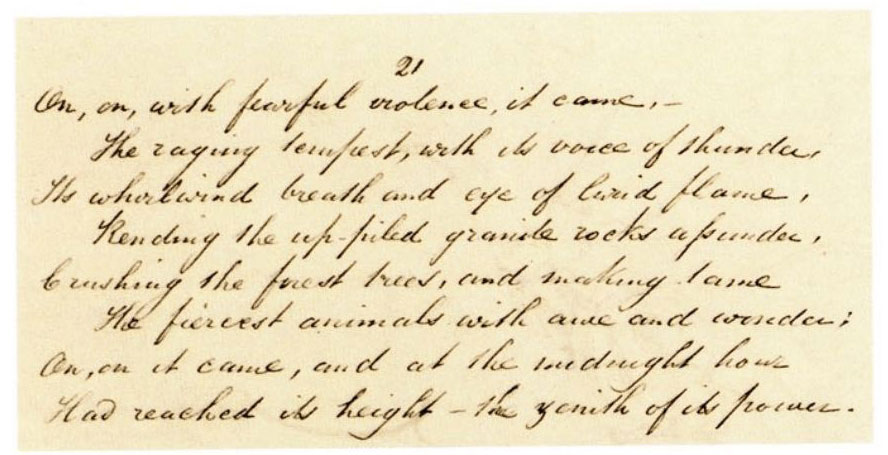 21
On, on, with fearful violence, it came, –
The raging tempest, with its voice of thunder,
Its whirlwind breath and eye of livid flame,
Rending the up-piled granite rocks asunder,
Crushing the forest trees, and making tame
The fiercest animals with awe and wonder;
On, on it came, and at the midnight hour
Had reached its height – the zenith of its power.